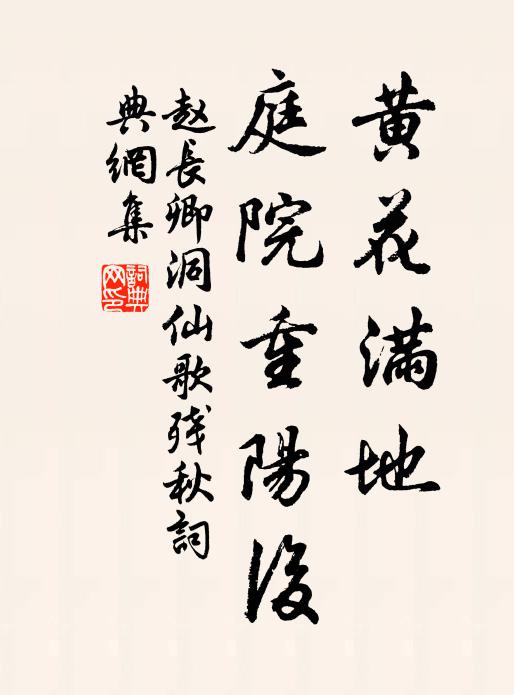 黄花满地
庭院重陽後
赵長卿洞仙歌残秋詞
典網集
詞典網印